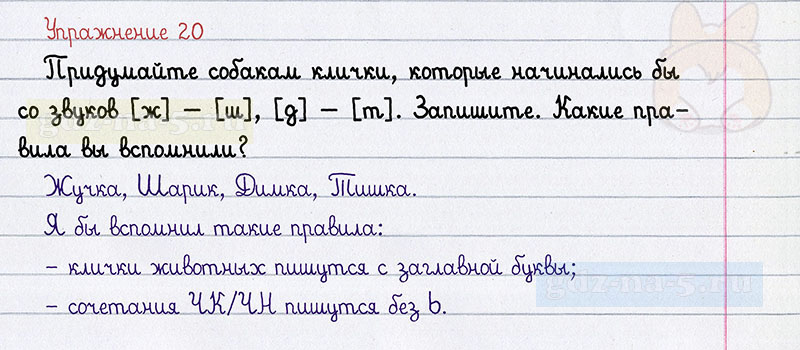 Упражнение 20
Придумайте собакам клички, которые начинались бы
со звуков [ж] – [ш], [д] – [т]. Запишите. Какие пра-
вила вы вспомнили?
Жучка, Шарик, Димка, Тишка.
Я бы вспомнил такие правила:
– клички животных пишутся с заглавной буквы;
– сочетания ЧК/ЧН пишутся без Ь.
gdz-na-5.ru